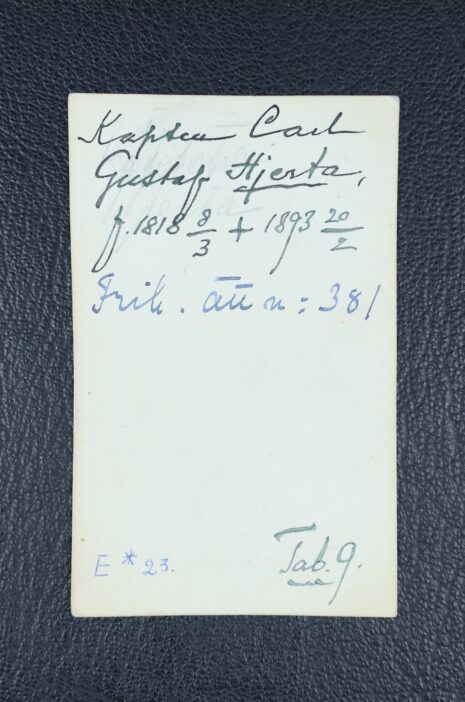 Kapten Carl
Gustaf Hjerta,
f. 1818 8/3 + 1893 20/2
Frih. ätt n: 381
E * 23.
Tab. 9.